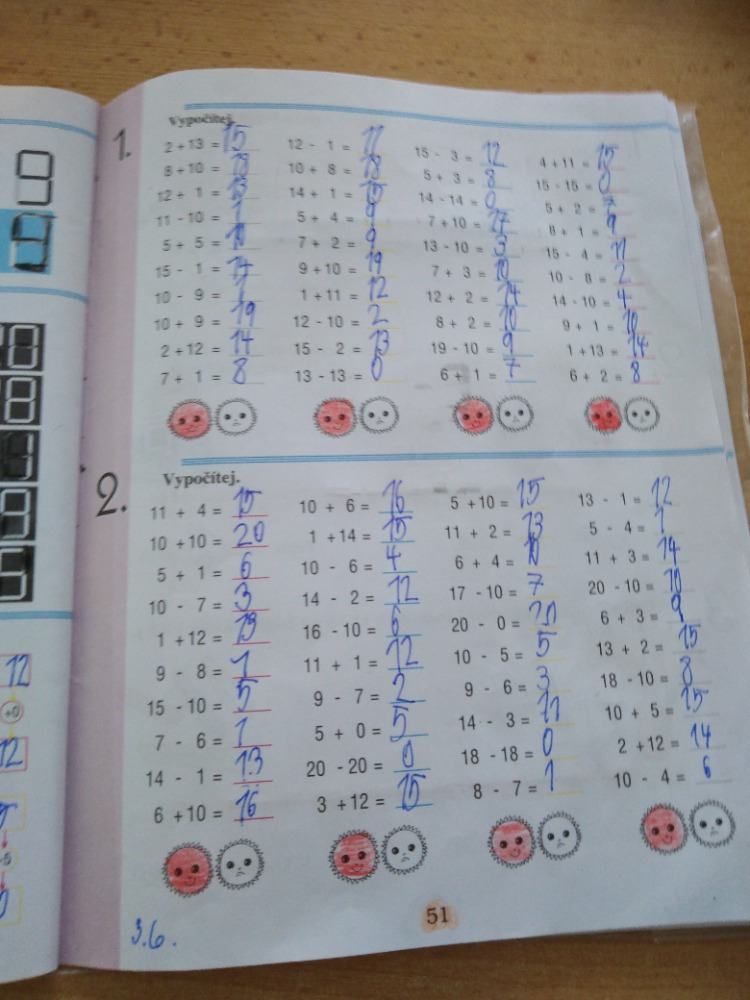 1.
Vypočítej.
2 + 13 = 15
8 + 10 = 18
12 + 1 = 13
11 - 10 = 1
5 + 5 = 10
15 - 1 = 14
10 - 9 = 1
10 + 9 = 19
2 + 12 = 14
7 + 1 = 8
12 - 1 = 11
10 + 8 = 18
14 + 1 = 15
5 + 4 = 9
7 + 2 = 9
9 + 10 = 19
1 + 11 = 12
12 - 10 = 2
15 - 2 = 13
13 - 13 = 0
15 - 3 = 12
5 + 3 = 8
14 - 14 = 0
7 + 10 = 17
13 - 10 = 3
7 + 3 = 10
12 + 2 = 14
8 + 2 = 10
19 - 10 = 9
6 + 1 = 7
4 + 11 = 15
15 - 15 = 0
5 + 2 = 7
8 + 1 = 9
15 - 4 = 11
10 - 8 = 2
14 - 10 = 4
9 + 1 = 10
1 + 13 = 14
6 + 2 = 8
2.
Vypočítej.
11 + 4 = 15
10 + 10 = 20
5 + 1 = 6
10 - 7 = 3
1 + 12 = 13
9 - 8 = 1
15 - 10 = 5
7 - 6 = 1
14 - 1 = 13
6 + 10 = 16
10 + 6 = 16
1 + 14 = 15
10 - 6 = 4
14 - 2 = 12
16 - 10 = 6
11 + 1 = 12
9 - 7 = 2
5 + 0 = 5
20 - 20 = 0
3 + 12 = 15
5 + 10 = 15
11 + 2 = 13
6 + 4 = 10
17 - 10 = 7
20 - 0 = 20
10 - 5 = 5
9 - 6 = 3
14 - 3 = 11
18 - 18 = 0
8 - 7 = 1
13 - 1 = 12
5 - 4 = 1
11 + 3 = 14
20 - 10 = 10
6 + 3 = 9
13 + 2 = 15
18 - 10 = 8
10 + 5 = 15
2 + 12 = 14
10 - 4 = 6
51
3.6.
12
+0
12